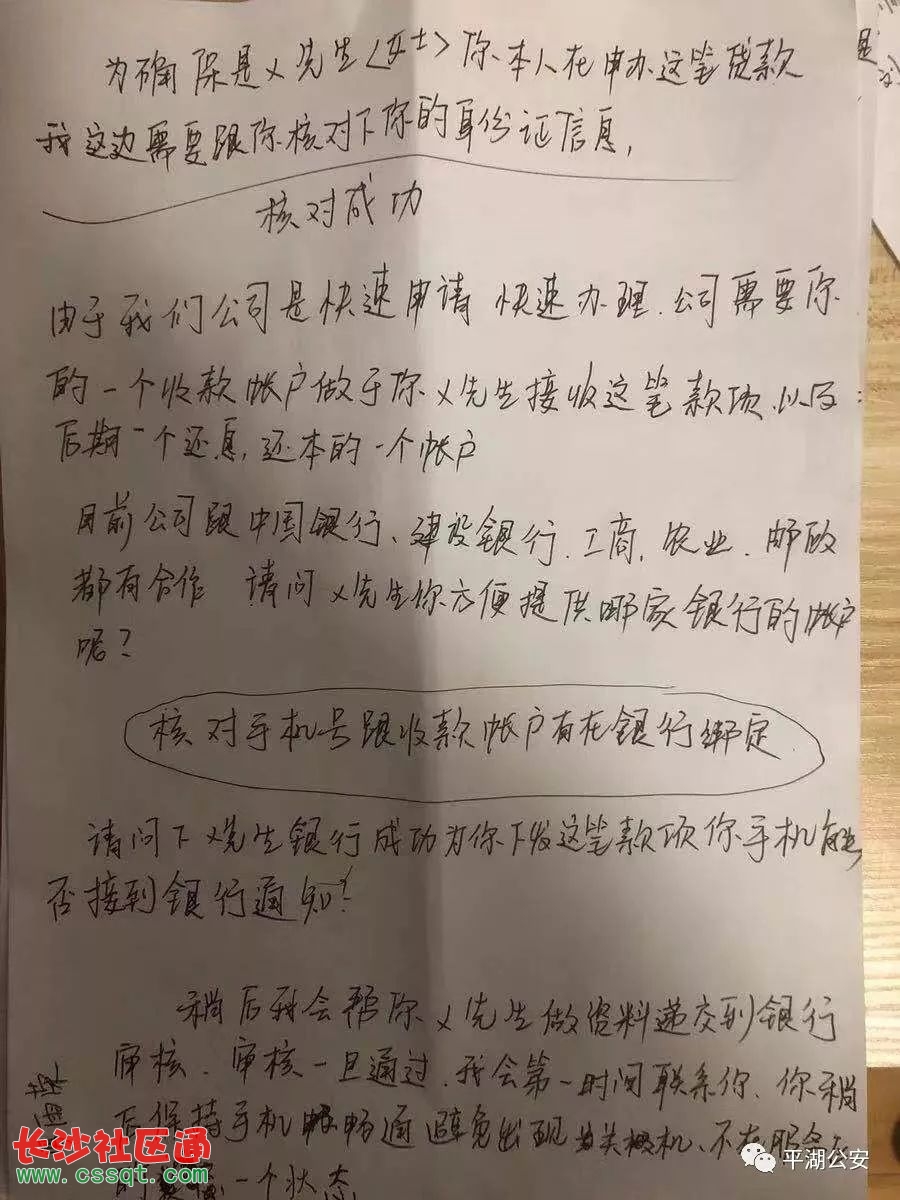 为确保是乂先生<女士>你本人在申办这笔贷款
我这边需要跟你核对下你的身份证信息,
核对成功
由于我们公司是快速申请 快速办理.公司需要你
的一个收款帐户做于你乂先生接收这笔款项、以及
后期一个还息,还本的一个帐户
目前公司跟中国银行、建设银行.工商,农业.邮政
都有合作 请问乂先生你方便提供哪家银行的帐户
呢?
核对手机号跟收款帐户有在银行绑定
请问下乂先生银行成功为你下发这笔款项你手机能
否接到银行通知?
稍后我会帮你乂先生做资料递交到银行
审核.审核一旦通过.我会第一时间联系你.你稍
后保持手机畅通避免出现关机、不在服务
一个状态
长沙社区通
www.cssqt.com
平湖公安